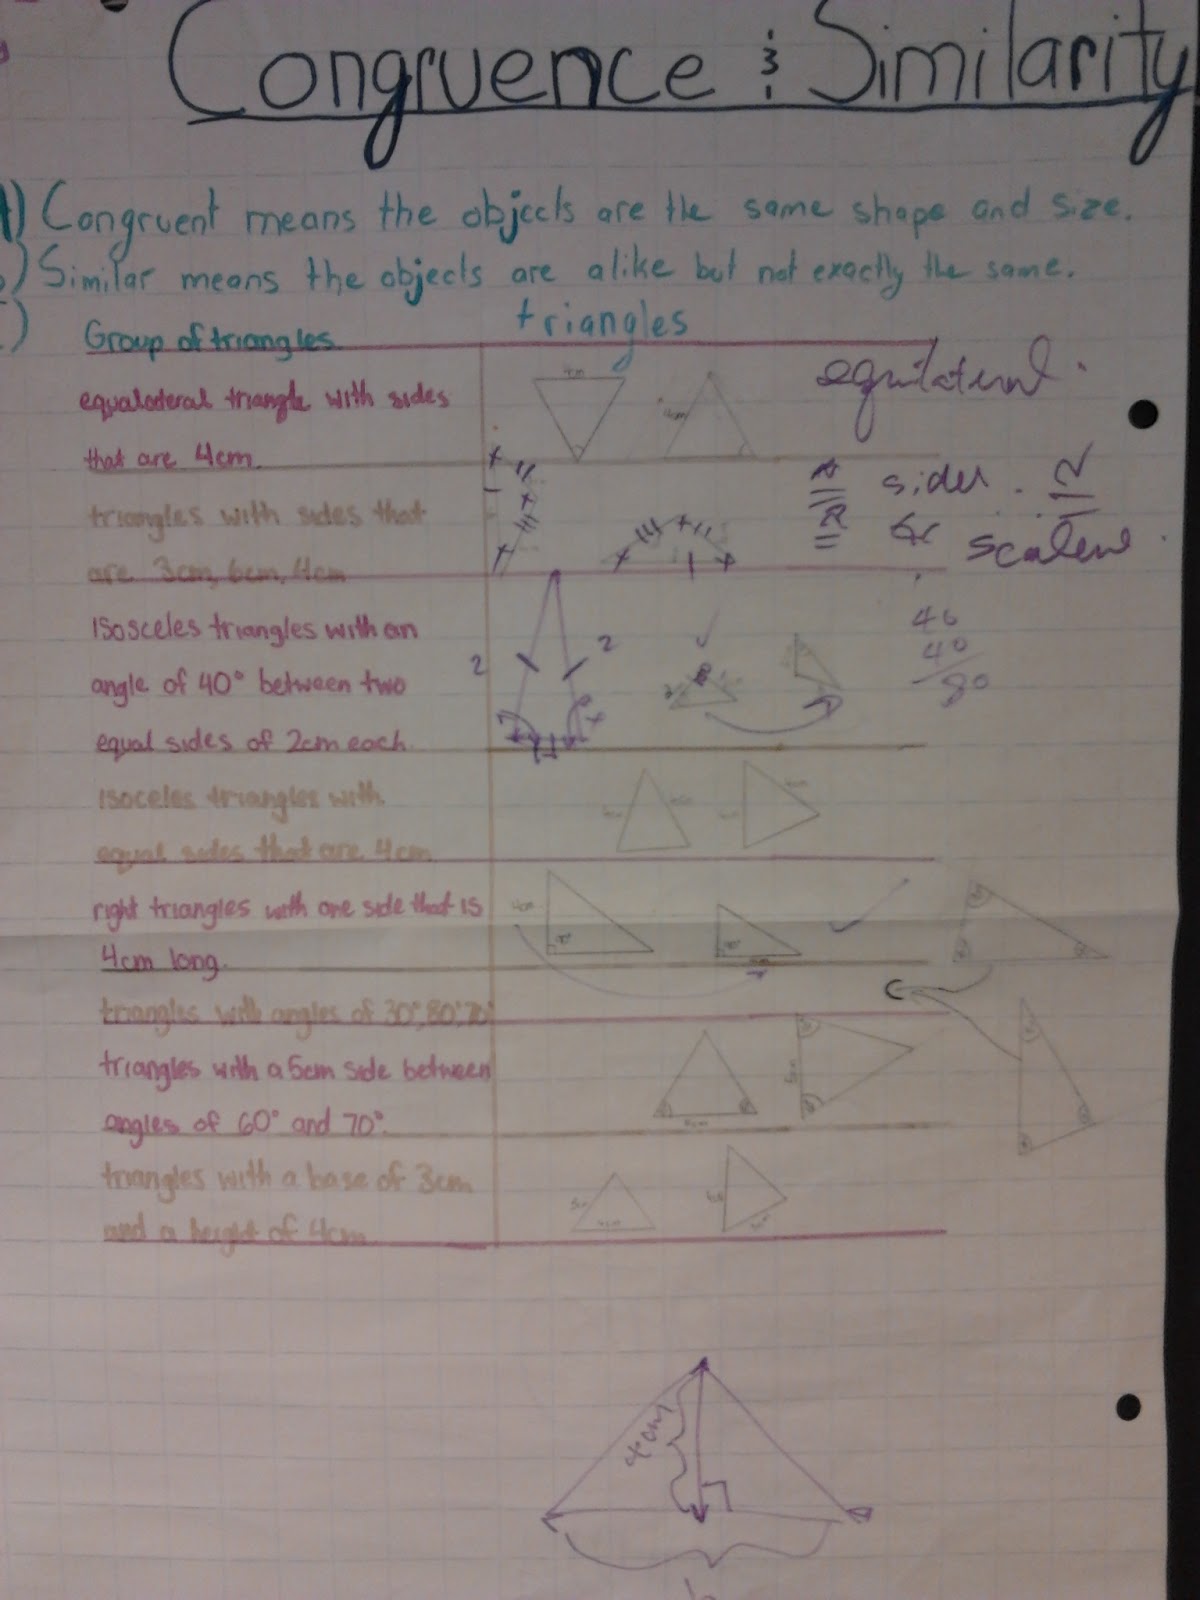 Congruence & Similarity
A) Congruent means the objects are the same shape and size.
) Similar means the objects are alike but not exactly the same.
) Group of triangles
triangles
equalateral triangle with sides
that are 4cm.
4cm
4cm
equilateral.
triangles with sides that
are 3cm, 6cm, 4cm
sides.
scalene.
Isosceles triangles with an
angle of 40° between two
equal sides of 2cm each.
2
2
40
40
80
Isoceles triangles with
equal sides that are 4cm
right triangles with one side that is
4cm long.
4cm
triangles with angles of 30°, 80°, 70°
triangles with a 5cm side between
angles of 60° and 70°.
5cm
5cm
triangles with a base of 3cm
and a height of 4cm
4cm
b